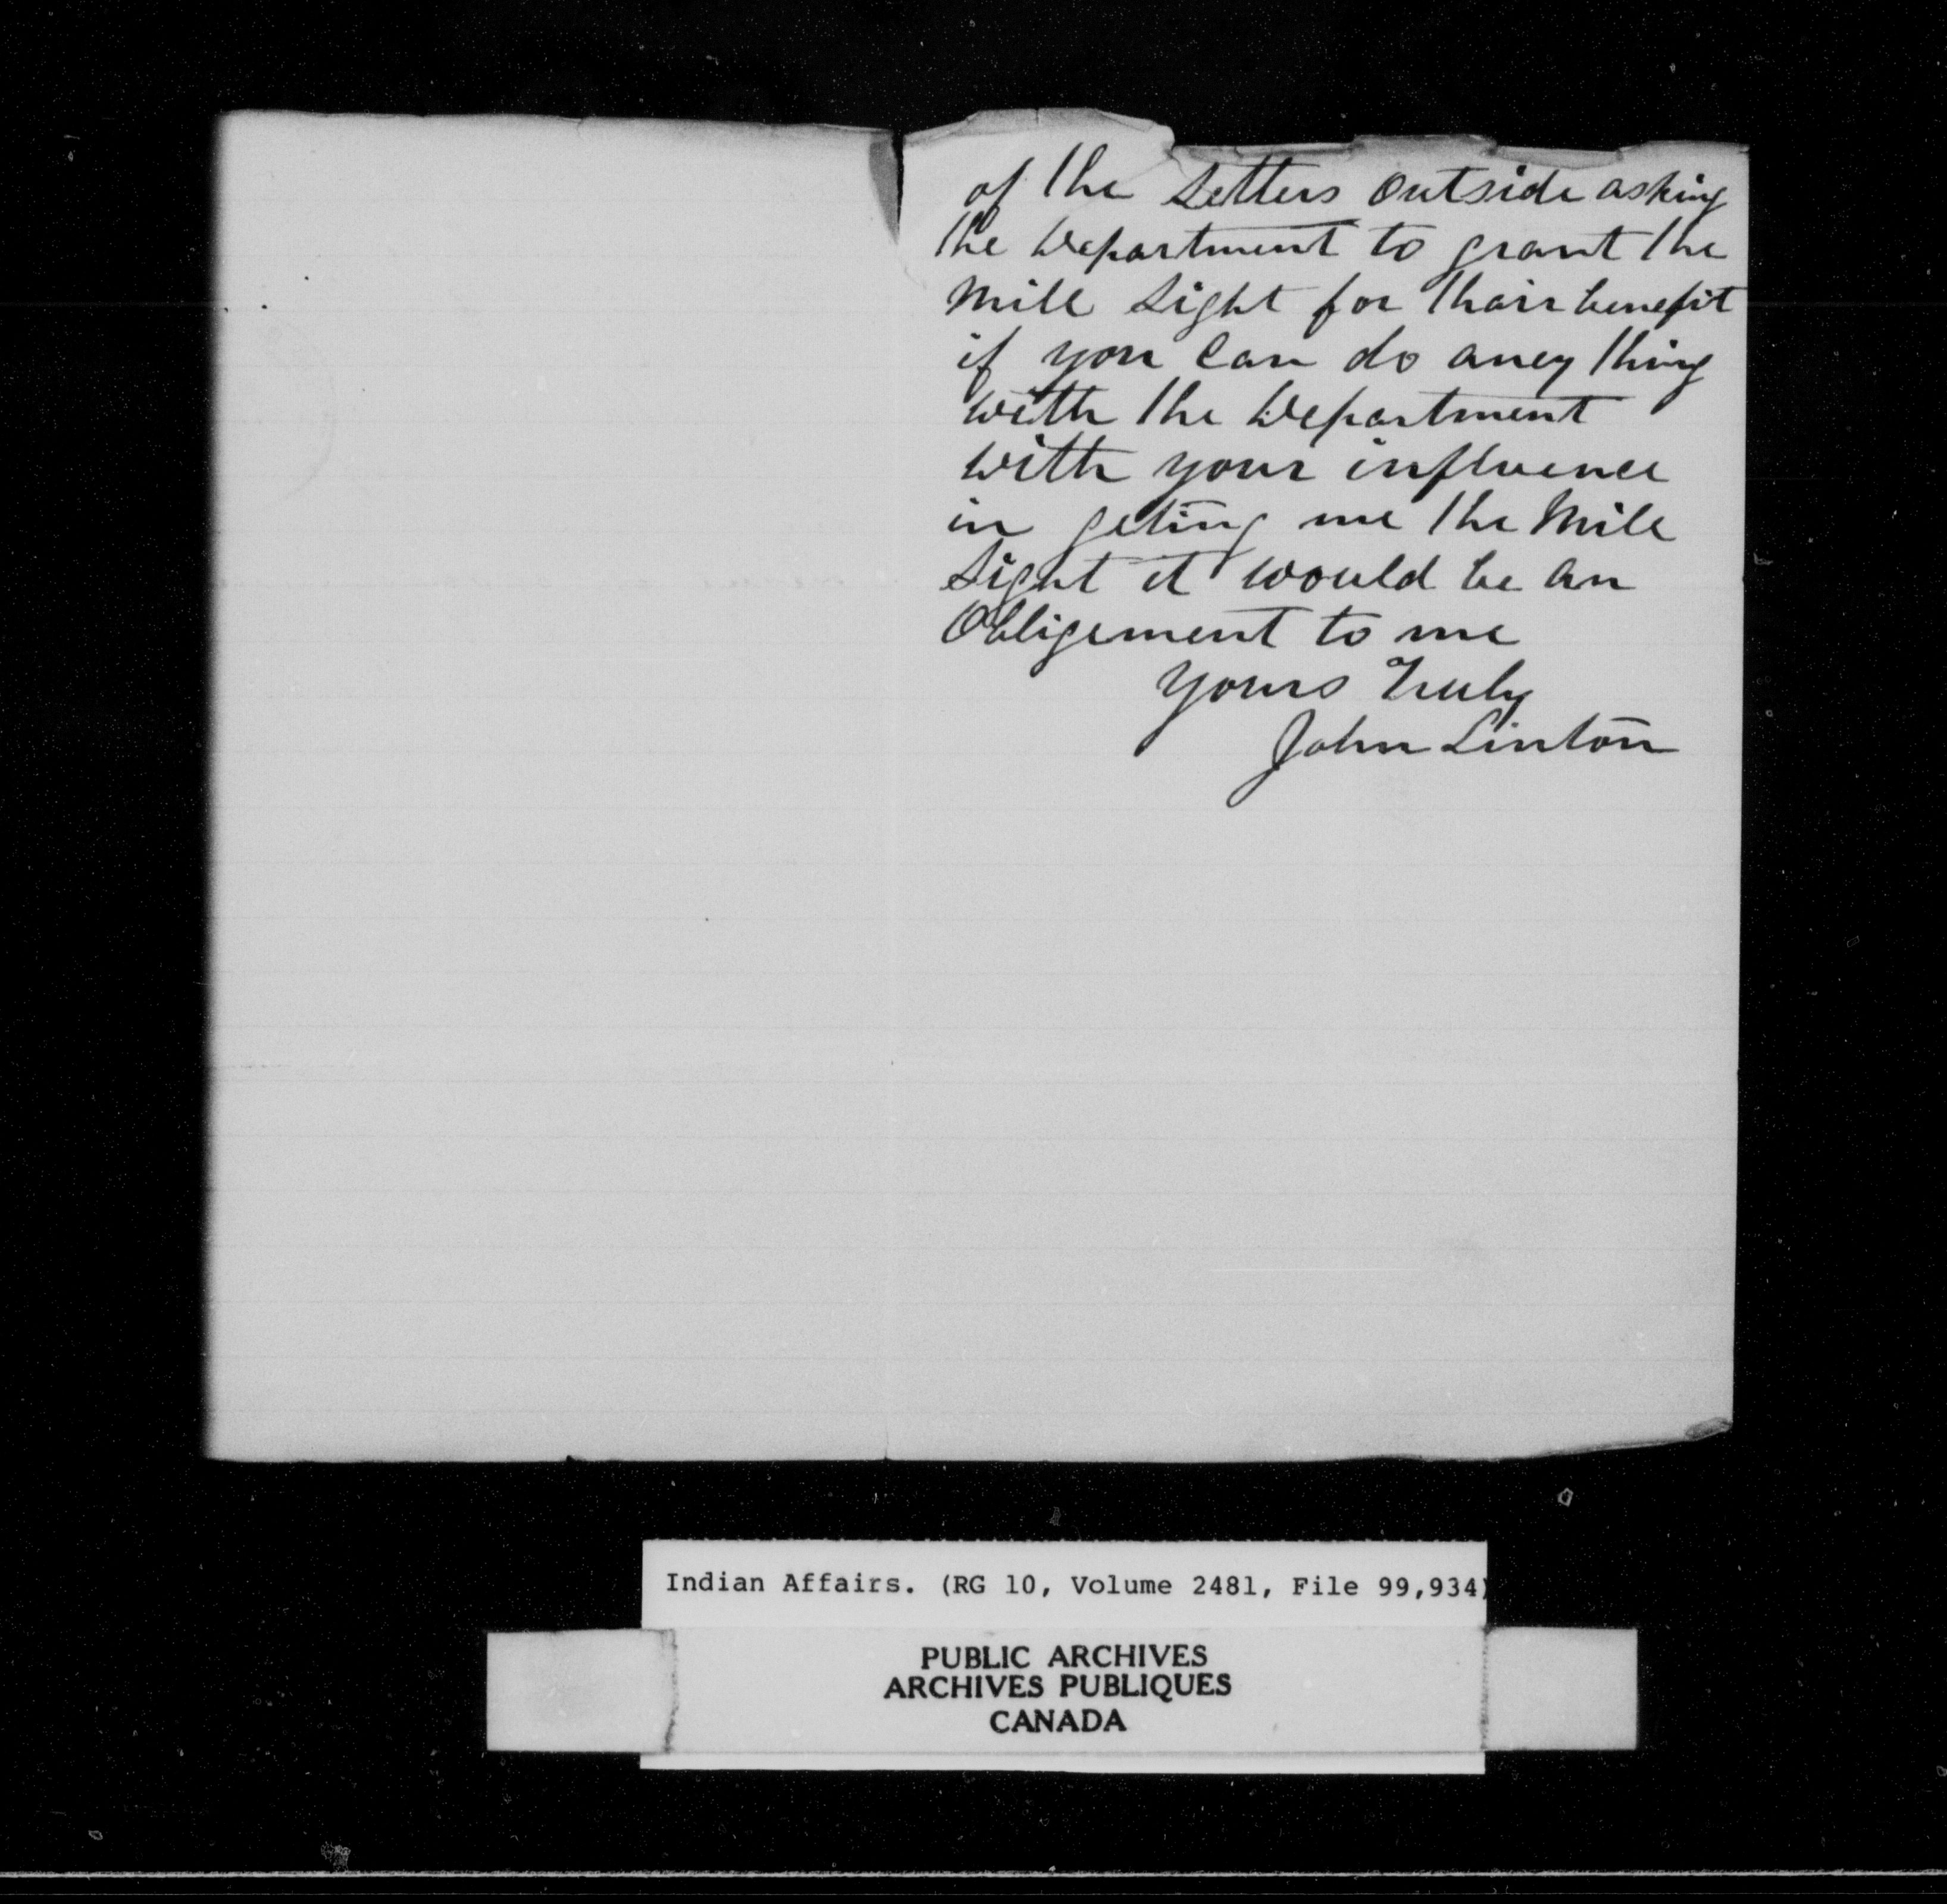 of the Setters outside asking
the Department to grant the
Mill Sight for thair benefit
if you Can do aney thing
with the Department
with your influence
in geting me the Mill
Sight it would be an
Obligement to me
Yours Truly
John Linton
Indian Affairs. (RG 10, Volume 2481, File 99,934)
PUBLIC ARCHIVES
ARCHIVES PUBLIQUES
CANADA